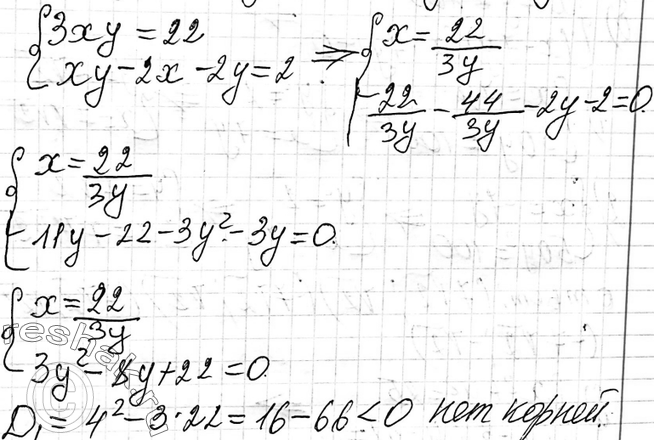 {3xy = 22
{xy - 2x - 2y = 2 ⇒ {x = 22/3y
{22/3y - 44/3y - 2y - 2 = 0.
{x = 22/3y
{11y - 22 - 3y² - 3y = 0.
{x = 22/3y
{3y² - 8y + 22 = 0.
D₁ = 4² - 3·22 = 16 - 66 < 0 нет корней.
reshak.ru